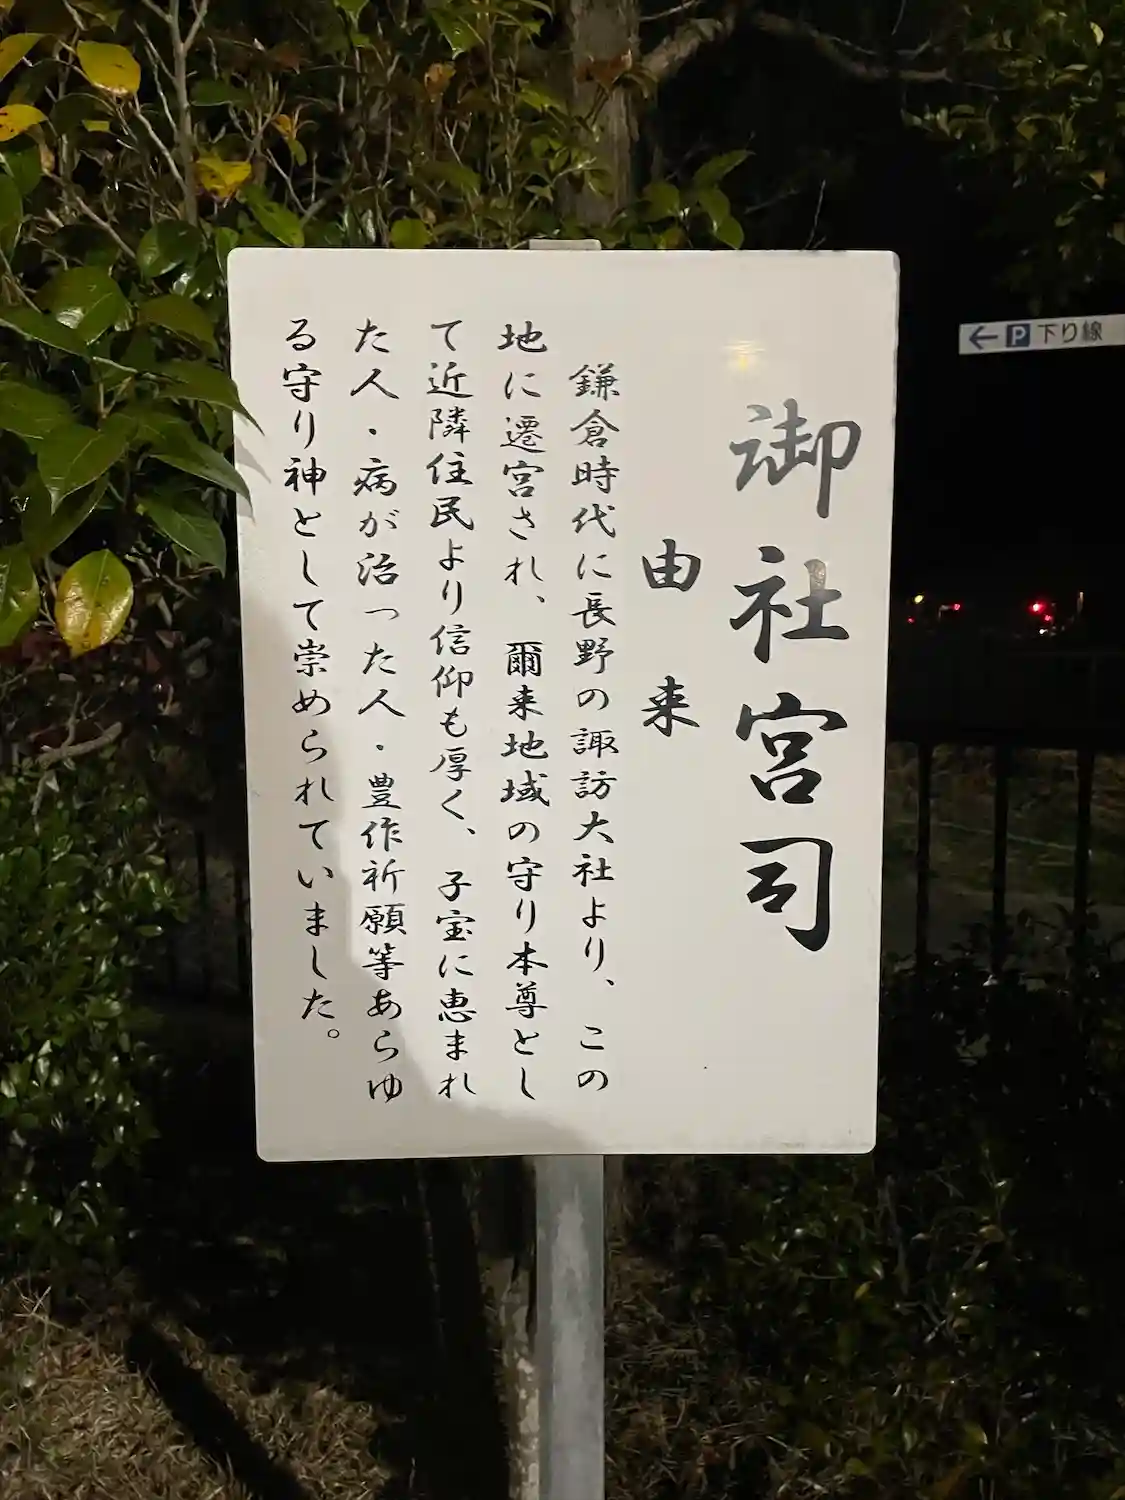 御社宮司
由来
鎌倉時代に長野の諏訪大社より、この
地に遷宮され、爾来地域の守り本尊とし
て近隣住民より信仰も厚く、子宝に恵まれ
た人・病が治った人・豊作祈願等あらゆ
る守り神として崇められていました。
← P 下り線